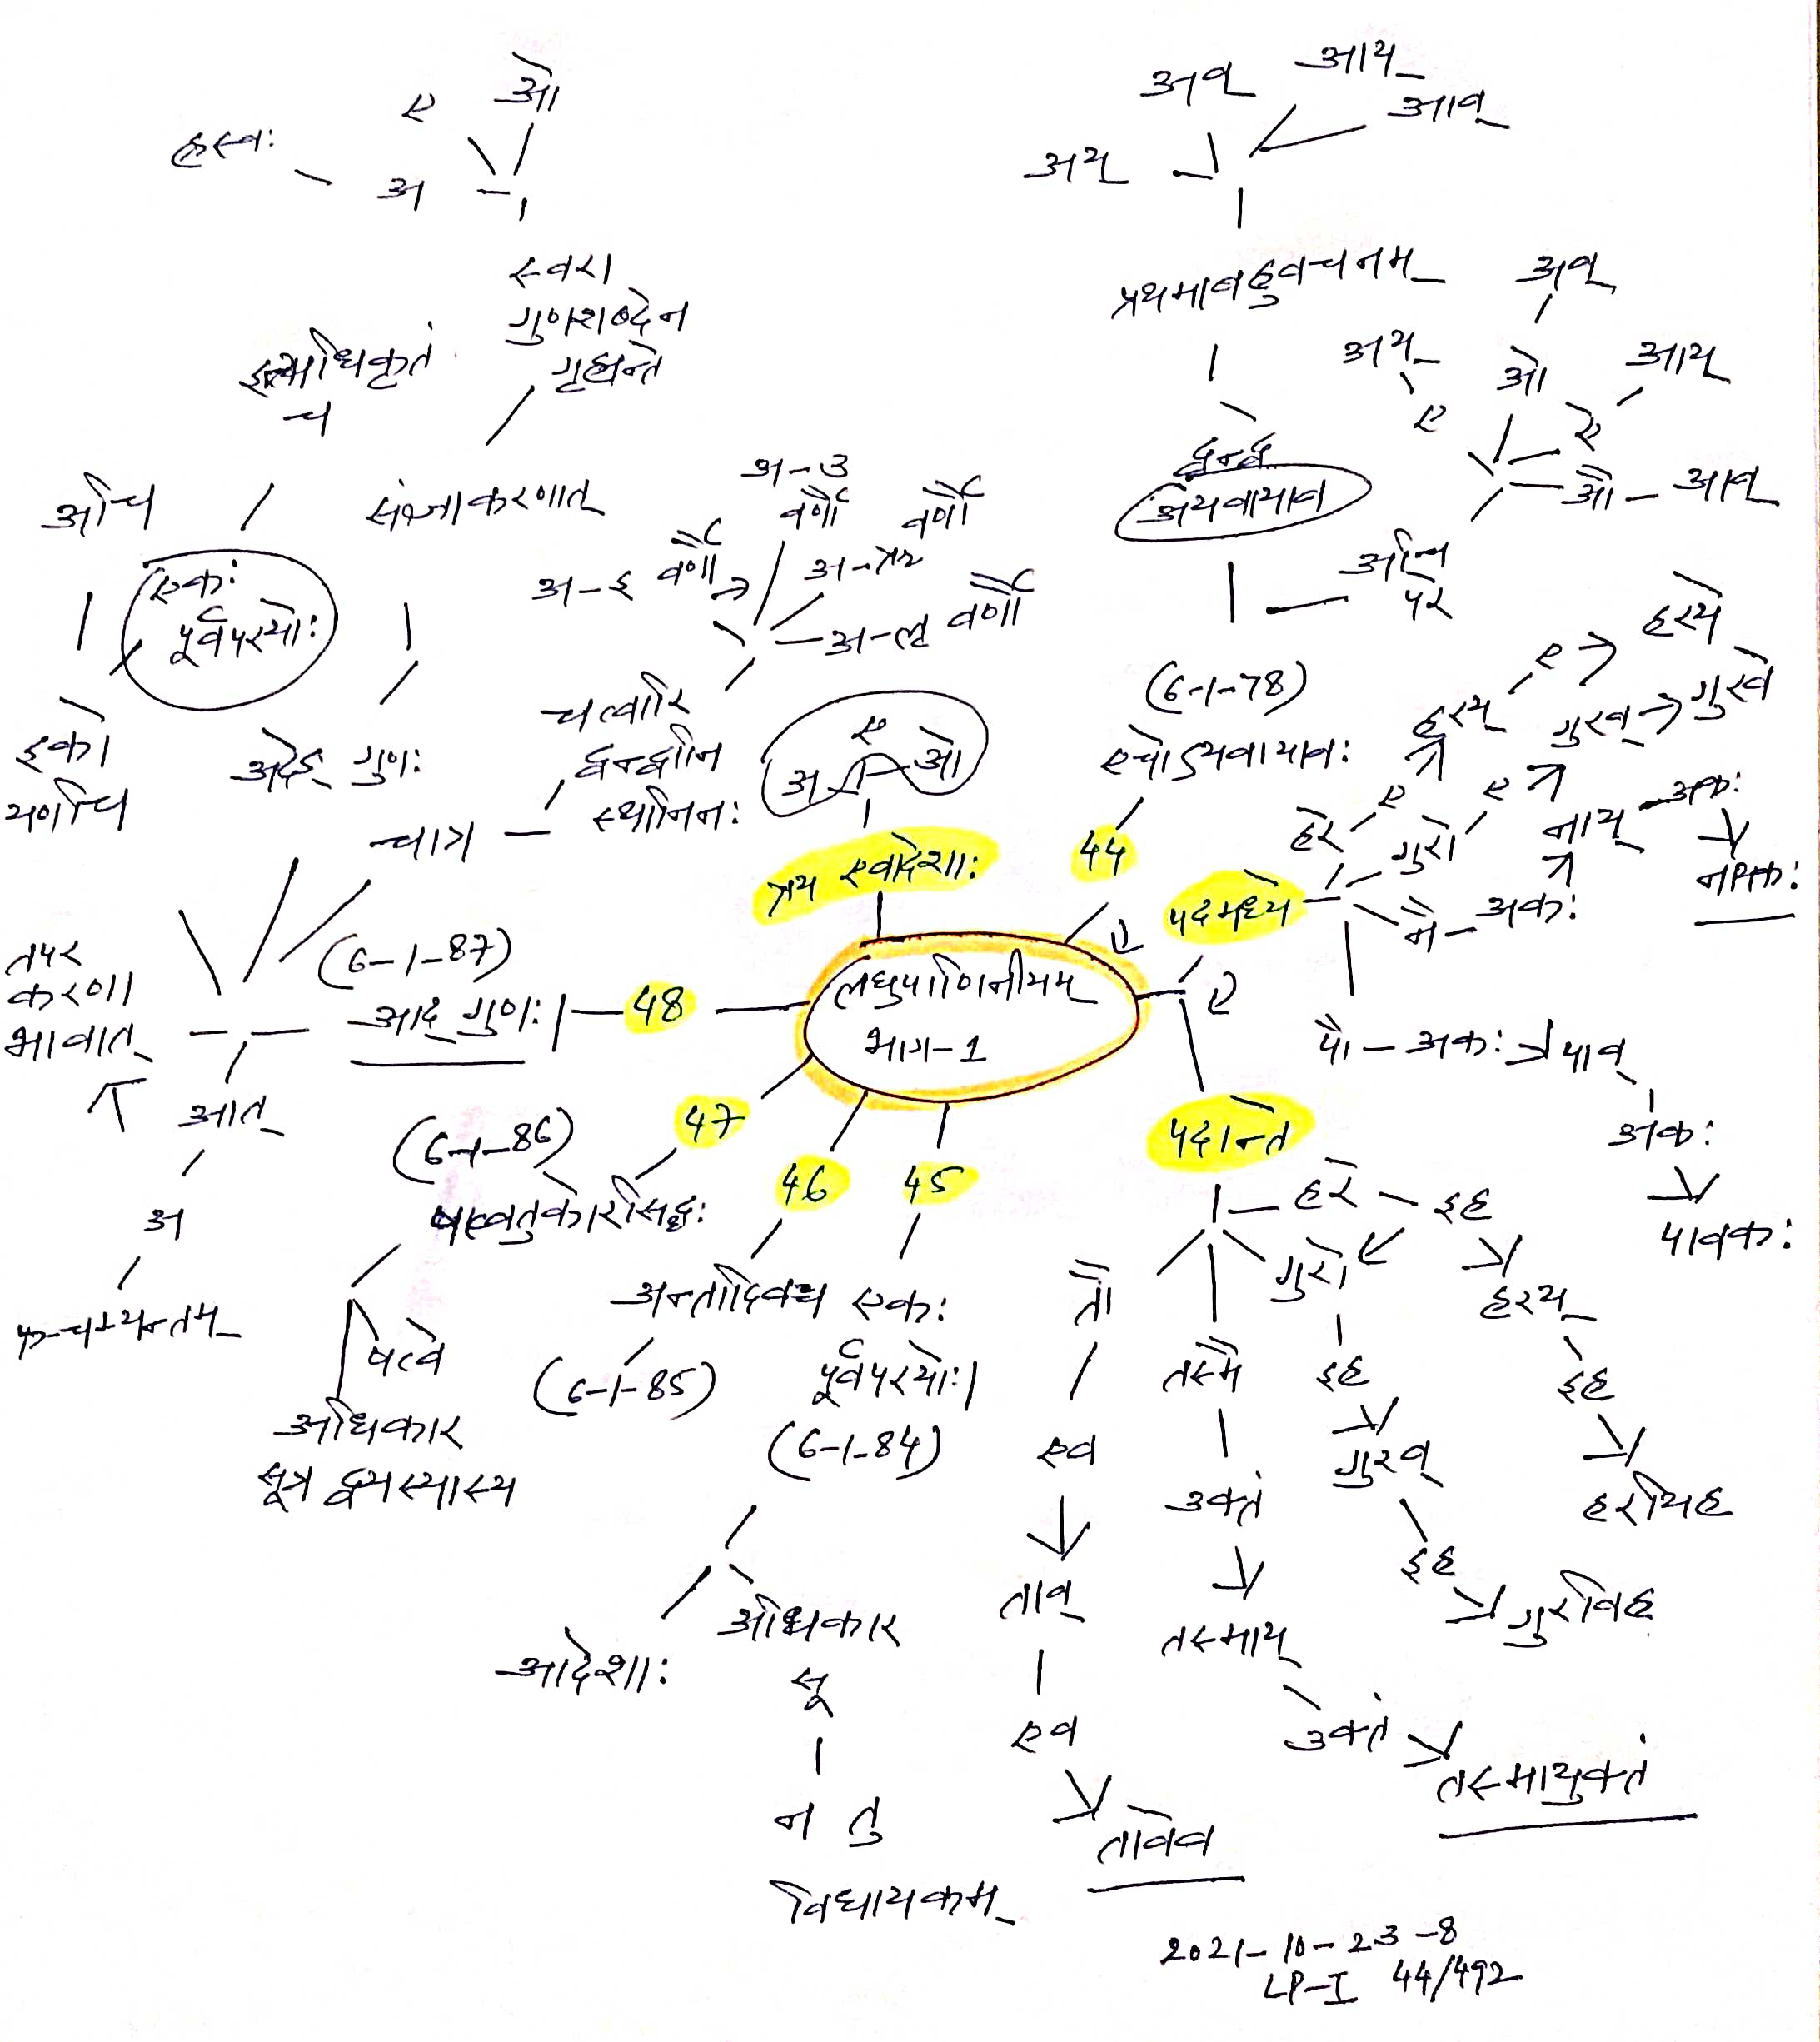 ह्रस्वः
ए
ओ
अ
स्वरा
गुणशब्देन
गृह्यन्ते
इत्यधिकृतं
च
अचि
संज्ञाकरणात्
एकः
पूर्वपरयोः
इको
यणचि
अदेङ् गुणः
चात्र
अ-उ
वर्णौ
वर्णौ
अ-इ वर्णौ
अ-ऋ
अ-लृ वर्णौ
चत्वारि
द्वन्द्वानि
स्थानिनः
ए
अ
ओ
त्रय एवादेशाः
अव्
आय्
आव्
अय्
प्रथमाबहुवचनम्
द्वन्द्वे
अयवायाव
अचि
परे
अव्
अय्
ओ
आय्
ए
ऐ
औ - आव्
(6-1-78)
एचोऽयवायावः
44
पदमध्ये
हरय्
ए
हरये
गुरव्
गुरवे
हरे
ए
गुरो
ए
नाय्
अकः
नै - अकः
नायकः
पौ - अकः
पाव्
अकः
पावकः
लघुपाणिनीयम्
भाग-1
ए
पदान्ते
हरे - इह
गुरो
हरय्
इह
इह
हरयिह
गुरव्
इह
गुरविह
तस्मै
उक्तं
तस्माय्
उक्तं
तस्मायुक्तं
तौ
एव
ताव्
एव
तावेव
48
(6-1-87)
आद् गुणः।
तपर
करणा
भावात्
आत्
अ
पञ्चम्यन्तम्
47
(6-1-86)
षत्वतुकोरसिद्धः
षत्वे
अधिकार
सूत्र द्वयस्यास्य
46
अन्तादिवच्च
(6-1-85)
45
एकः
पूर्वपरयोः।
(6-1-84)
आदेशाः
अधिकार
सू
न तु
विधायकम्
2021-10-23-8
LP-I 44/492